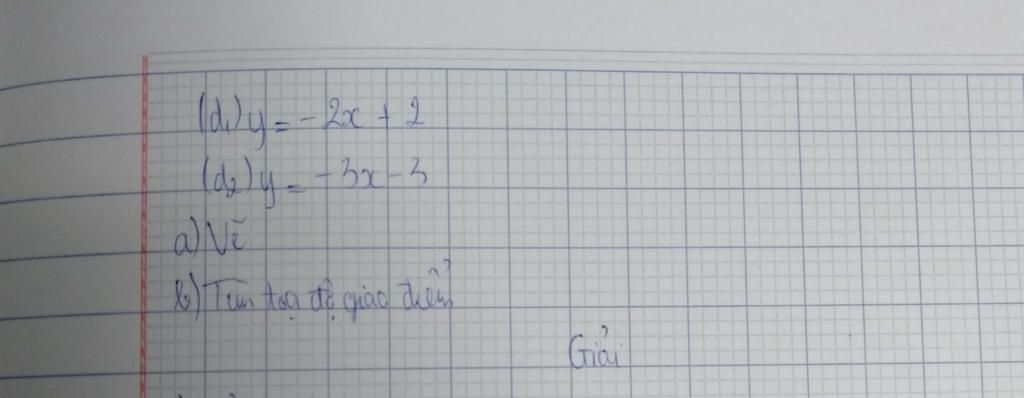 (d₁) y = -2x + 2
(d₂) y = -3x - 3
a) Vẽ
b) Tìm toạ độ giao điểm
Giải